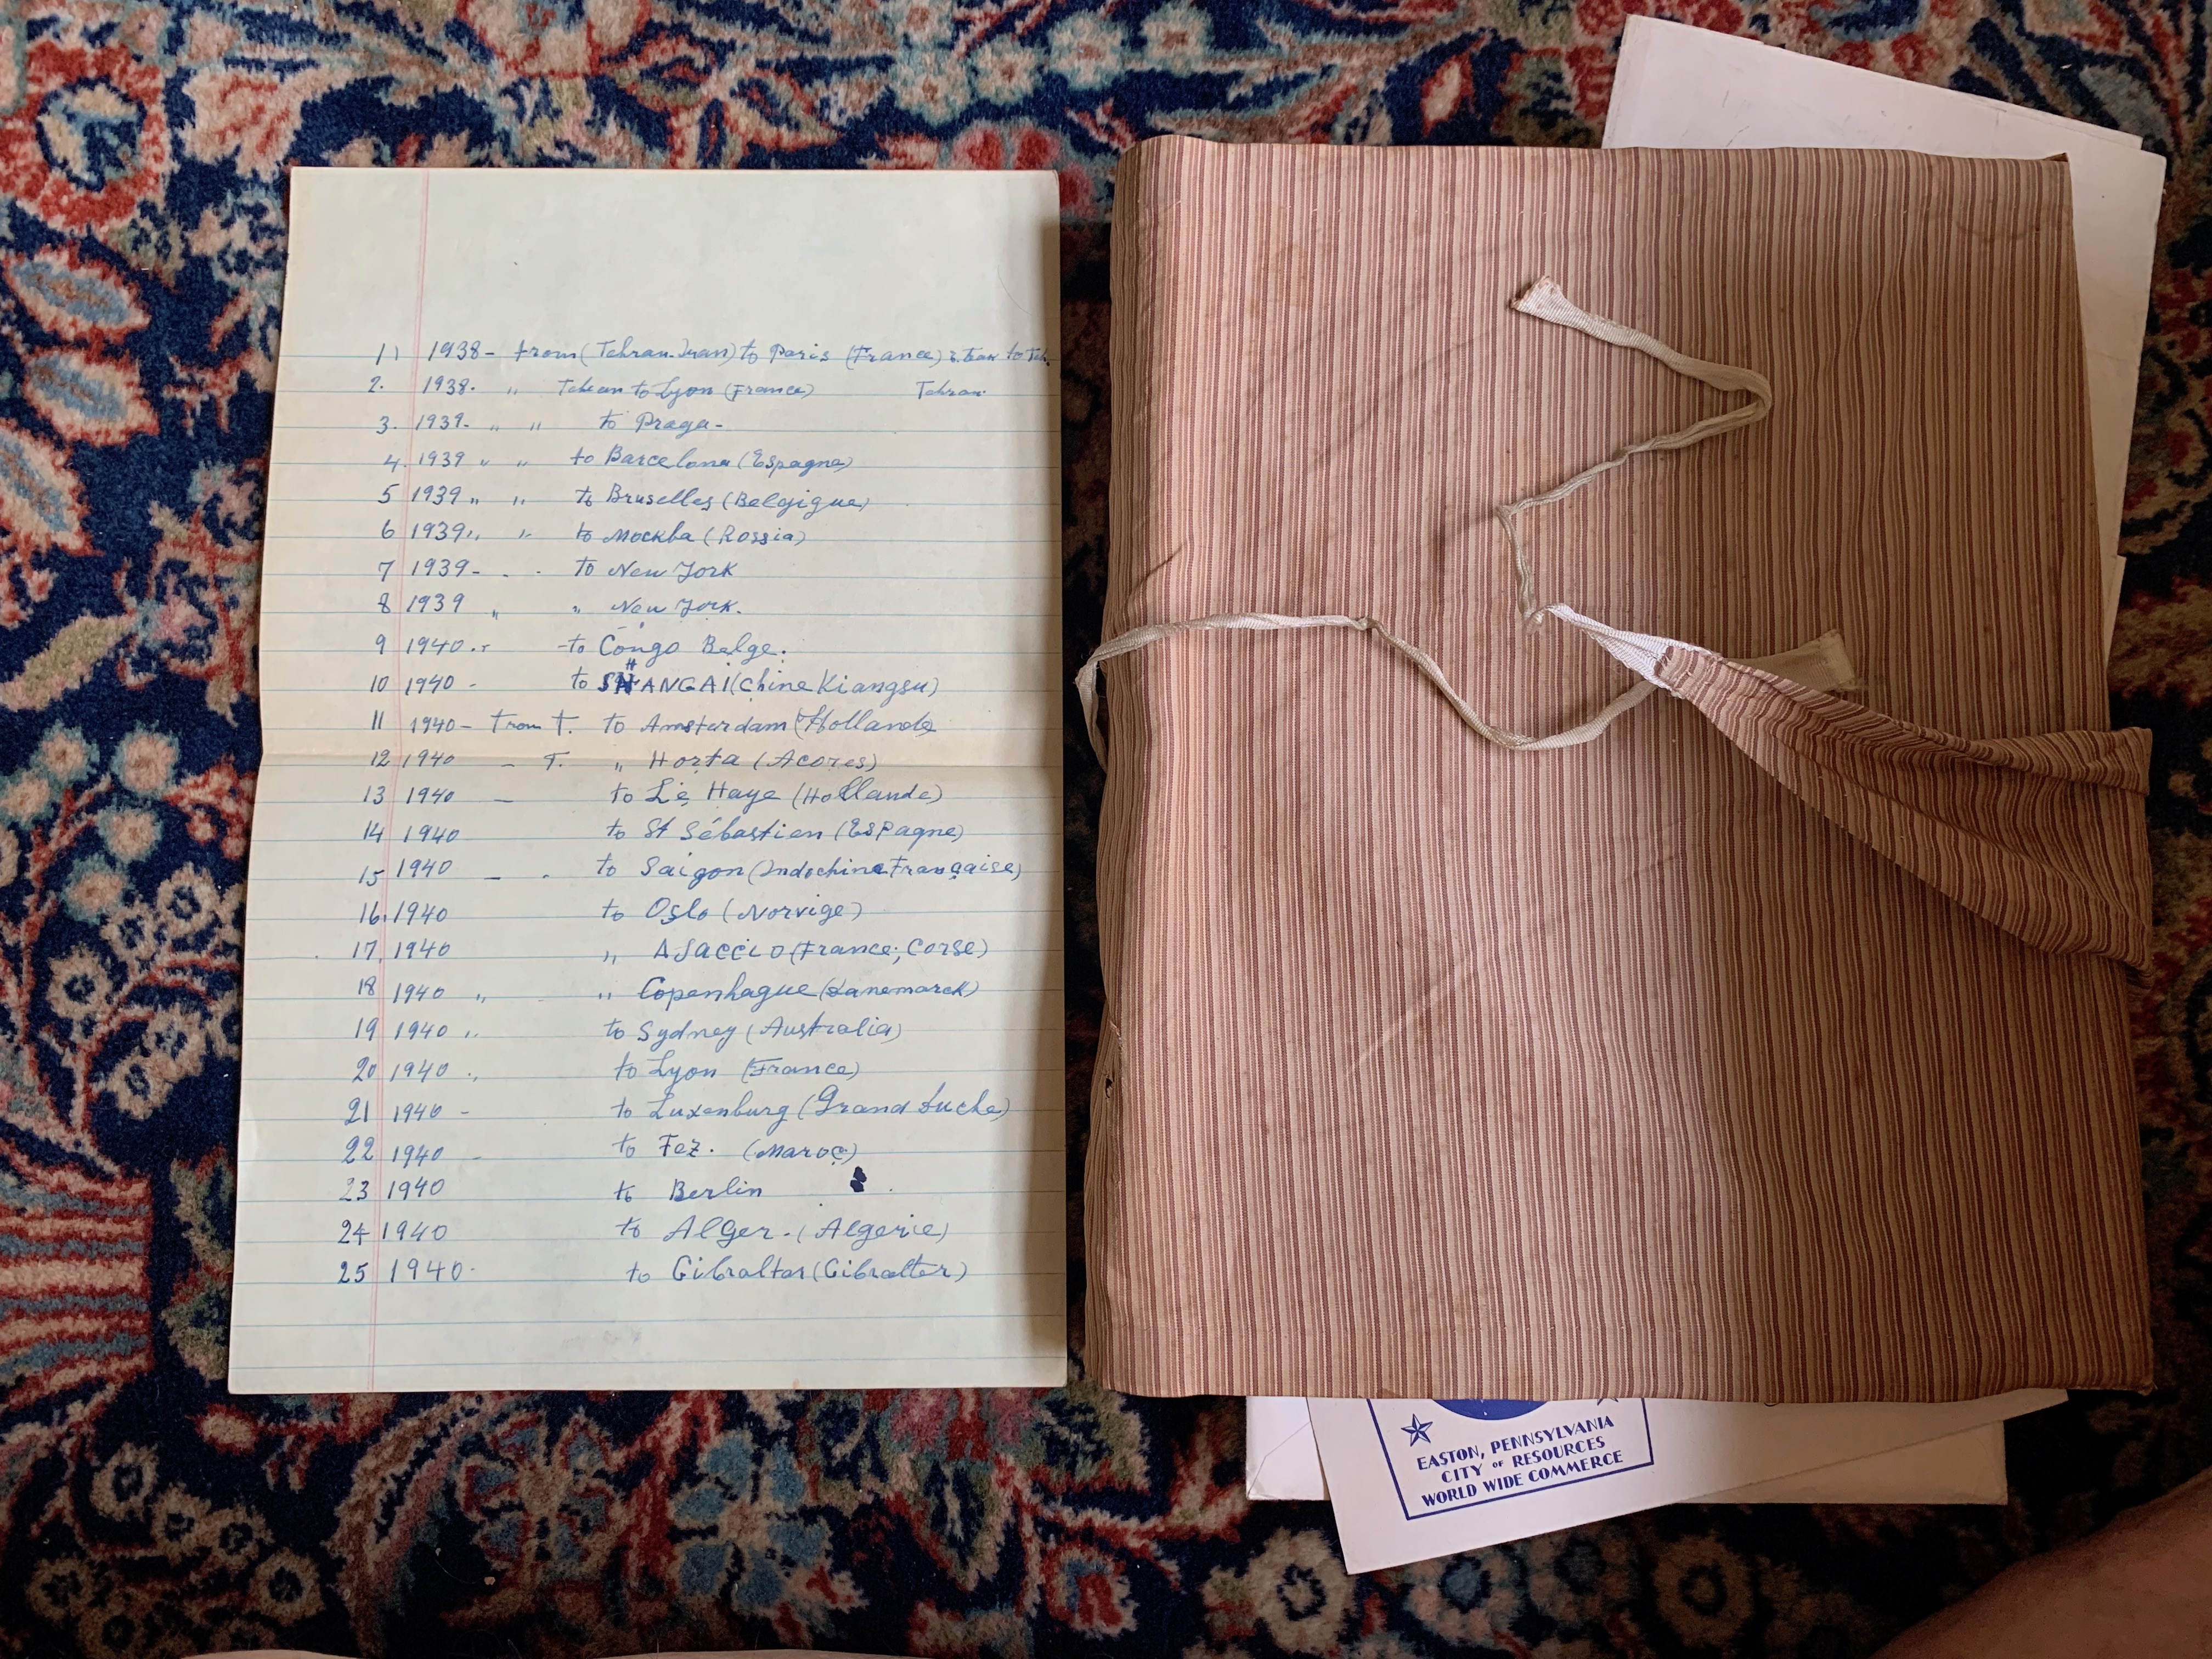 1) 1938- from (Tehran-Iran) to Paris (France) to Teh.
2. 1938. " Tehran to Lyon (France) Tehran
3. 1939- " " to Praga-
4. 1939 " " to Barcelona (Espagne)
5 1939 " " to Bruselles (Belgique)
6 1939 " " to Mockba (Rossia)
7 1939 - . . to New York
8 1939 " " New York.
9 1940 .. to Congo Belge.
10 1940 - to SHANGAI (Chine Kiangsu)
11 1940 - from T. to Amsterdam (Hollande
12 1940 - T. " Horta (Acores)
13 1940 - to Le Haye (Hollande)
14 1940 to St Sébastien (Espagne)
15 1940 - . to Saigon (Indochine Française)
16. 1940 to Oslo (Norvige)
17. 1940 " AJACCIO (France; Corse)
18 1940 " " Copenhague (Danemarck)
19 1940 " to Sydney (Australia)
20 1940 ., to Lyon (France)
21 1940 - to Luxenburg (Grand Duche)
22 1940 - to Fez. (Maroc)
23 1940 to Berlin
24 1940 to Alger. (Algerie)
25 1940. to Gibraltar (Gibralter)
EASTON, PENNSYLVANIA
CITY OF RESOURCES
WORLD WIDE COMMERCE